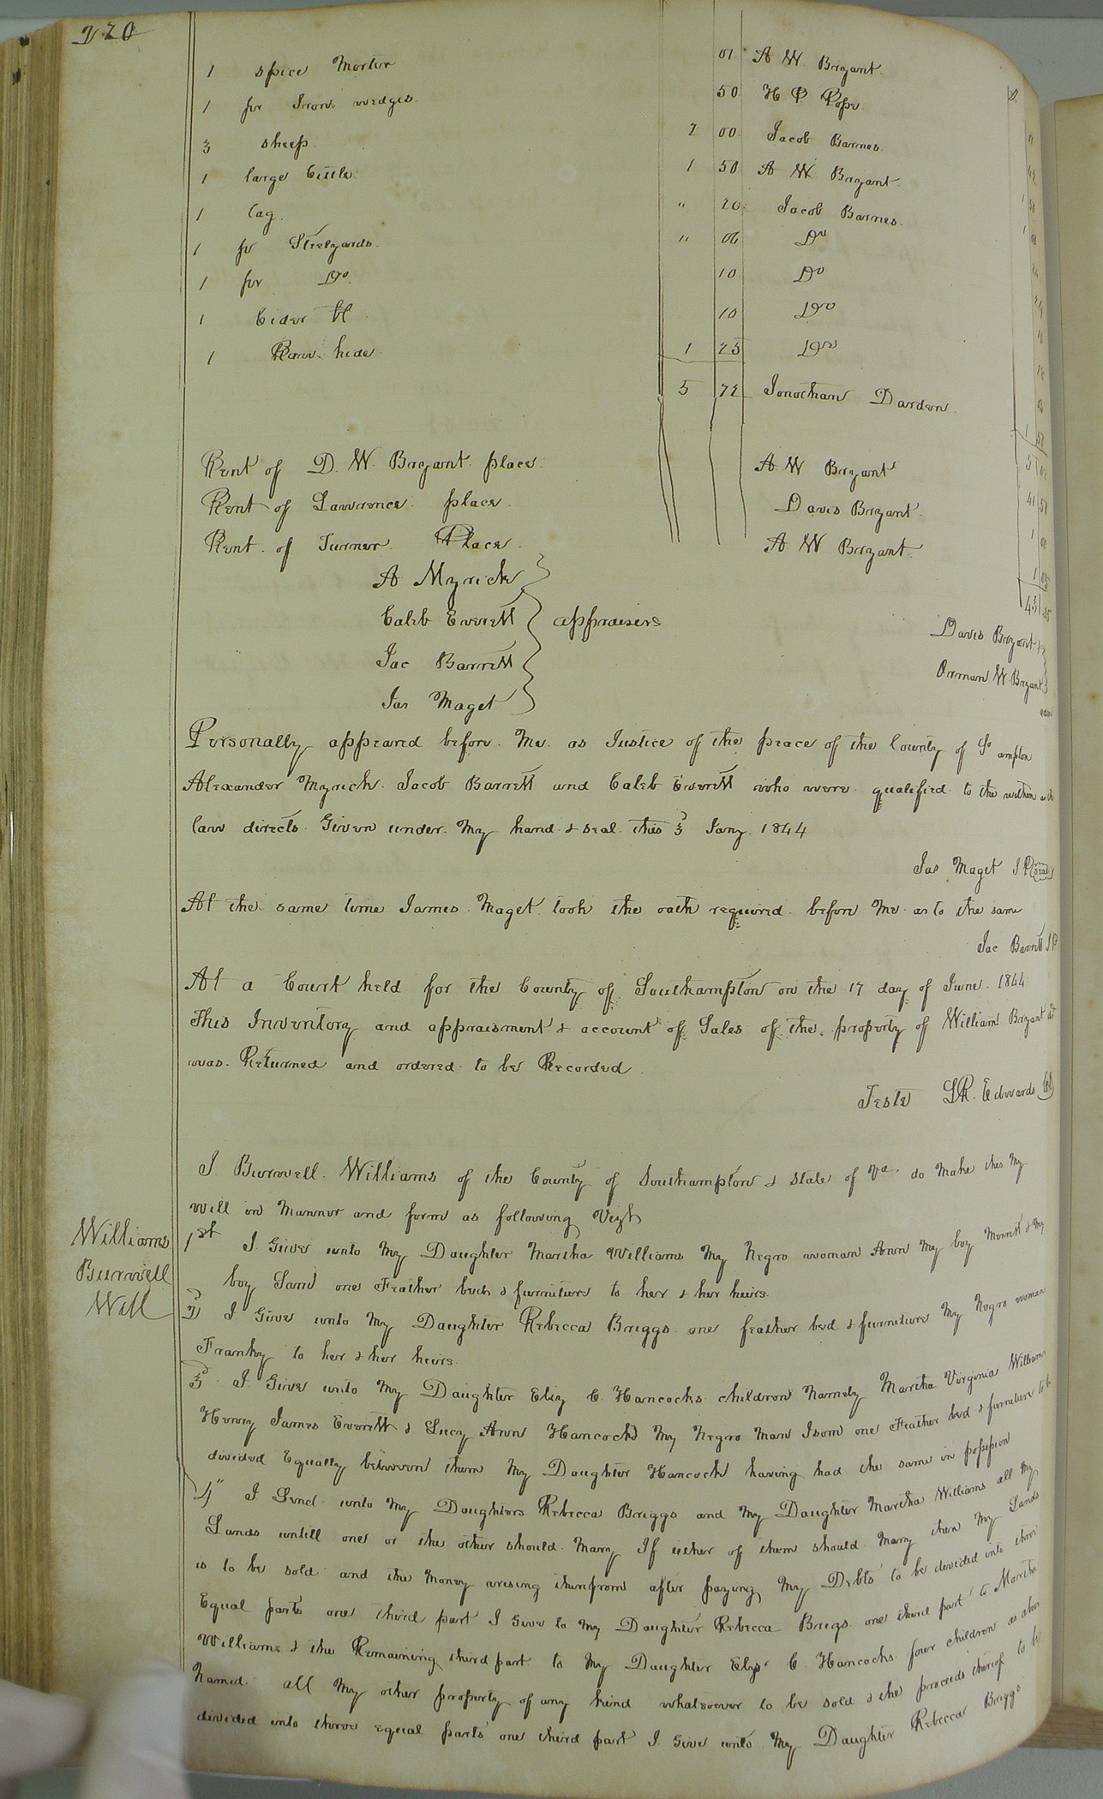 220
1 spice Morter 01 A W Bryant
1 pr Iron wedges 50 H P Pope
3 sheep 2 00 Jacob Barnes
1 large Cittle 1 50 A W Bryant
1 Cag " 20 Jacob Barnes
1 pr Steelyards " 06 Do
1 pr Do 10 Do
1 Cider 10 Do
1 Raw hide 1 25 Do
5 72 Jonathan Darden
Rent of D. W. Bryant place A W Bryant
Rent of Lawrence place Davis Bryant
Rent of Turner Place A W Bryant
A Myrick
Caleb Everett appraisers
Jac Barrett
Jas Maget
Davis Bryant
Orman W Bryant
Personally appeared before Me as Justice of the peace of the County of So ampton
Alexander Myrick Jacob Barrett and Caleb Everett who were qualified to the within as the
law directs Given under My hand & seal this 3d Jany 1844
Jas Maget J P (seal)
At the same time James Maget took the oath required before Me as to the same
Jac Barrett J P
At a Court held for the County of Southampton on the 17 day of June 1844
This Inventory and appraisment & account of Sales of the property of William Bryant
was Returned and ordered to be Recorded
Teste L R. Edwards
Williams
Burwell
Will
I Burwell Williams of the County of Southampton & State of Va do Make this My
Will in Manner and form as following Vizt
1st I Give unto My Daughter Martha Williams My Negro woman Ann My boy & My
boy one Feather bed & furniture to her & her heirs
2d I Give unto My Daughter Rebecca Briggs one feather bed & furniture My Negro woman
Franky to her & her heirs
3d I Give unto My Daughter Eliz C Hancocks children Namely Martha Virginia William
Henry James Everett & Lucy Ann Hancock My Negro Man Isom one Feather bed & furniture to be
divided Equally between them My Daughter Hancock having had the same in possession
4th I Lend unto My Daughters Rebecca Briggs and My Daughter Martha Williams all My
Lands untill one or the other should Marry If either of them should Marry then My Lands
is to be sold and the Money arising therefrom after paying My Debts to be divided into three
Equal parts one third part I Give to My Daughter Rebecca Brigs one third part to Martha
Williams & the Remaining third part to My Daughter Eliz C Hancocks four children as above
Named all My other property of any kind whatsoever to be sold & the proceeds thereof to be
divided into three equal parts one third part I Give unto My Daughter Rebecca Briggs